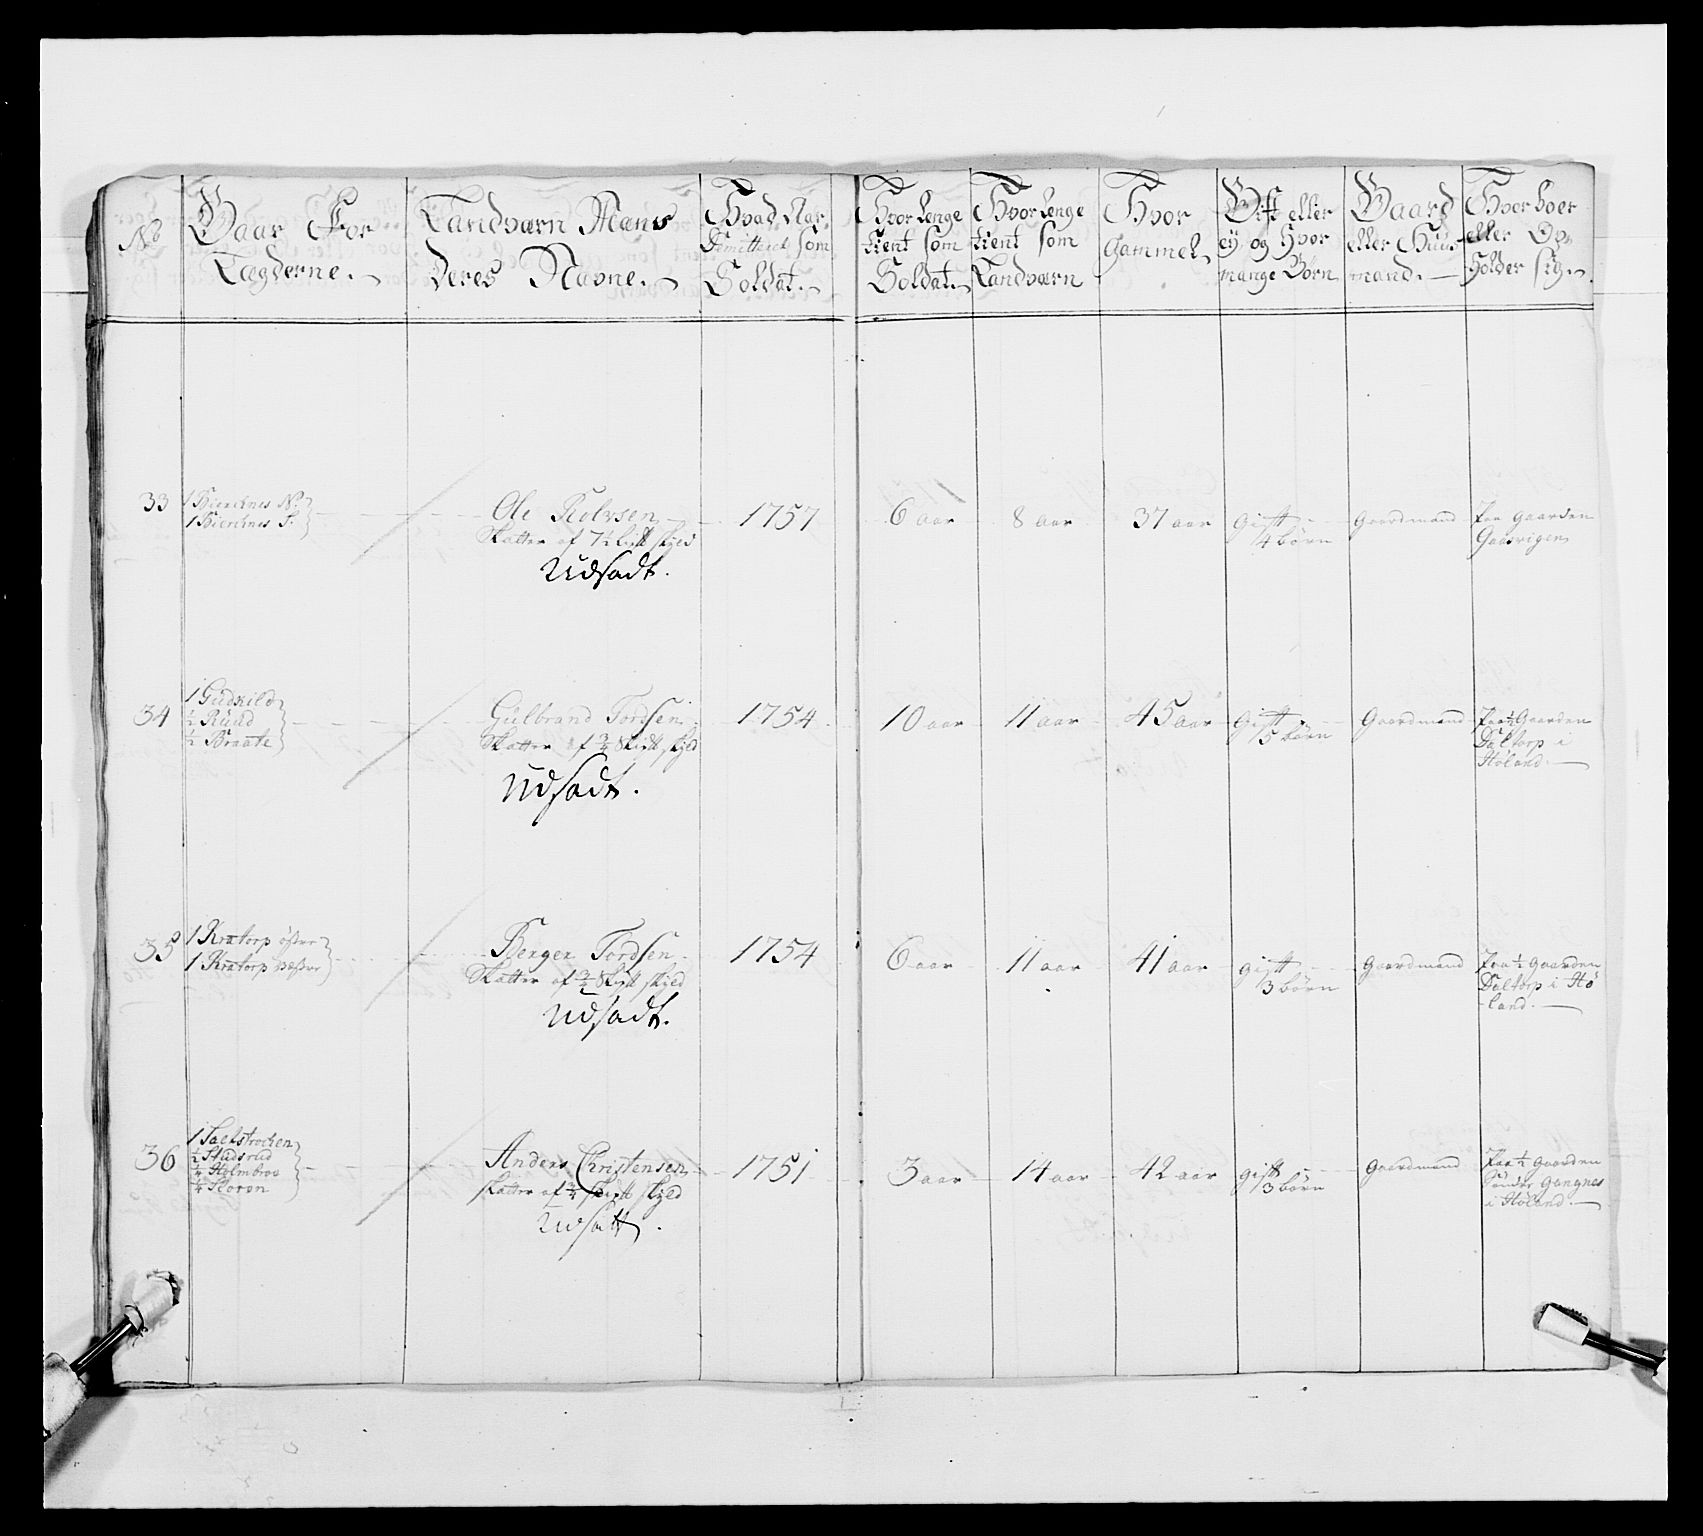 No
Gaar For
Lægderne.
Landværn Mans
Deres Navne.
Hvad Aar
Dimitteret som
Soldat.
Hvor Lenge
tient som
Soldat.
Hvor Lenge
tient som
Landværn
Hvor
Gammel
Gift eller
ey, og Hvor
mange Børn
Gaard
eller Huus
mand.
Hvor boer
eller Op,
holder sig.
33
1 Bierchnes N:
1 Bierchnes S:
Ole Rolvsen
Skatter af 7½ skyld
Udsadt.
1757
6 aar
8 aar
37 aar
gift
4 børn
Gaardmand
Paa gaarden
Gaasvigen
34
1 Gudkild
½ Ruud
½ Braate
Gulbrand Tordsen
Skatter af ¾ Skpd skyld
Udsadt.
1754
10 aar
11 aar
45 aar
gift
5 børn
Gaardmand
Paa ½ Gaarden
Daltorp i
Høland.
35
1 Kratorp øster
1 Kratorp væster
Berger Tordsen
Skatter af ¾ Skpd skyld
Udsadt.
1754
6 aar
11 aar
41 aar
gift
3 børn
Gaardmand
Paa ½ Gaarden
Daltorp i Hø
land.
36
½ Studsrud
¼ Holmbroe
Anders Christensen
skatter af ¾ skpd skyld
Udsatt.
1751
3 aar
14 aar
42 aar
gift
3 børn
Gaardmand
Paa ½ Gaarden
Sønder Gangnes
i Høland.